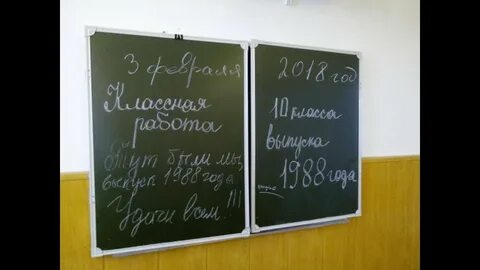 3 февраля
Классная
работа
Тут были мы,
выпуск 1988 года
Удачи всем!!!
2018 год
10 класса
выпуска
1988 года